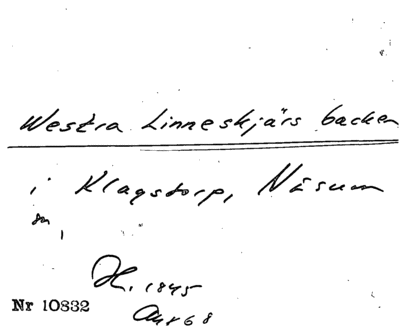 Westra Linneskjärs backen
i Klagstorp, Näsum
sn,
H. 1845
Nr 10832